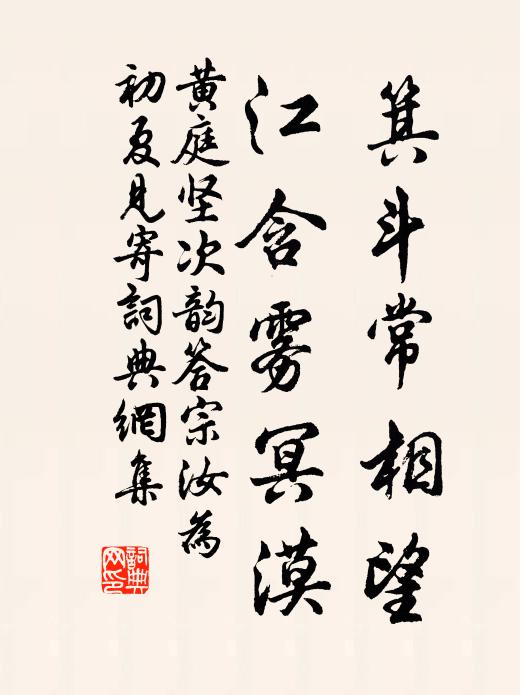 箕斗常相望
江含雾冥漠
黄庭坚次韵答宗汝為
初夏見寄詞典網集
詞典
网印